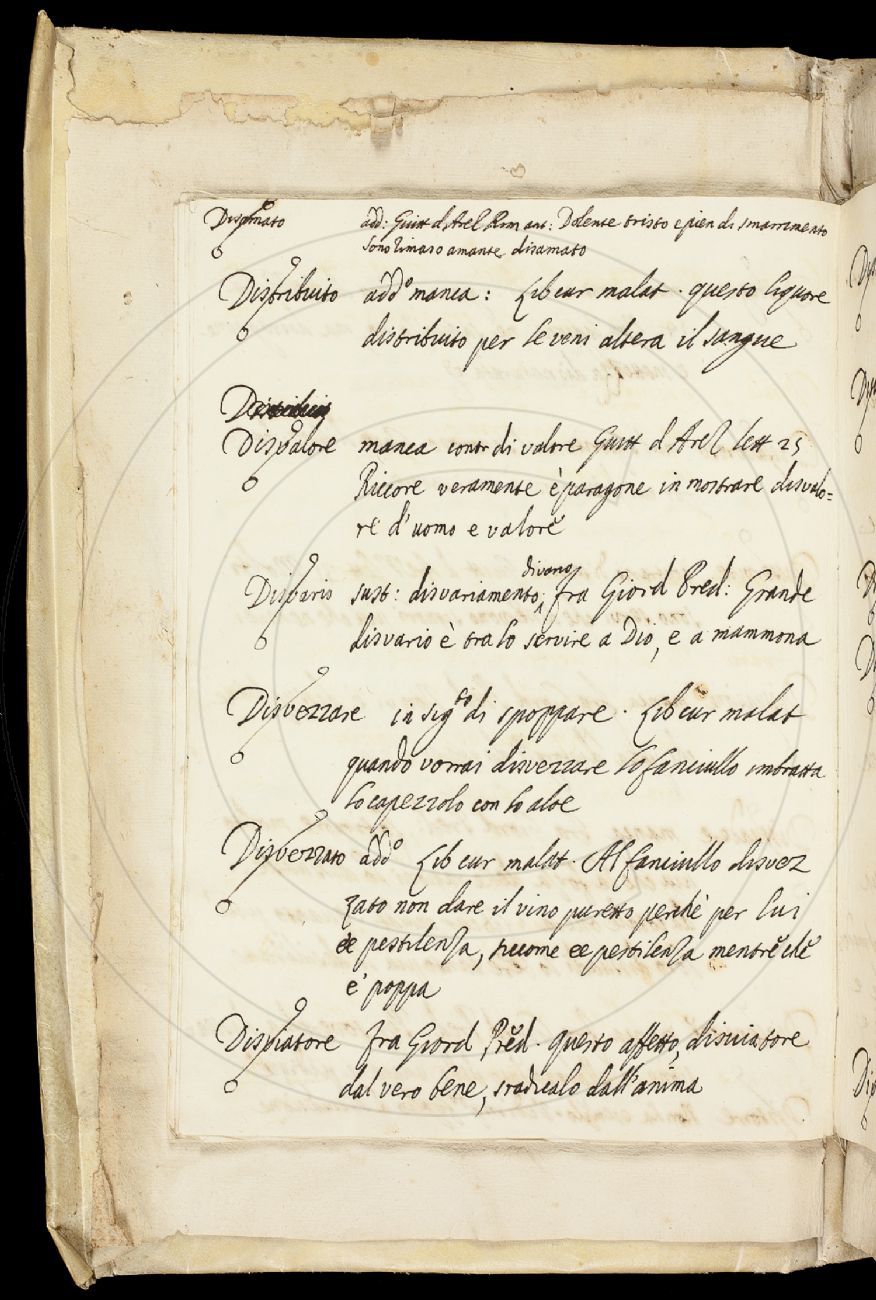 Disamato add: Guitt d'Arez Rim ant: Dolente tristo e pien di smarrimento
sono rimaso amante disamato
Distribuito add.o manca: Lib cur malat. questo liquore
distribuito per le veni altera il sangue
Disvalore manca contr di valore Guitt d'Arez lett 25
Riccore veramente è paragone in mostrare disvalo=
re d'uomo e valore
Disvario sust: disvariamento, divario fra Giord Pred: Grande
disvario è tra lo servire a Dio, e a mammona
Disvezzare in sig.to di spoppare. Lib cur malat
quando vorrai disvezzare lo fanciullo imbratta
lo capezzolo con lo aloe
Disvezzato add.o Lib cur malat. Al fanciullo disvez
zato non dare il vino puretto perchè per lui
èe pestilenza, siccome ee pestilenza mentre che
e' poppa
Disviatore fra Giord Pred. questo affetto, disviatore
dal vero bene, sradicalo dall'anima